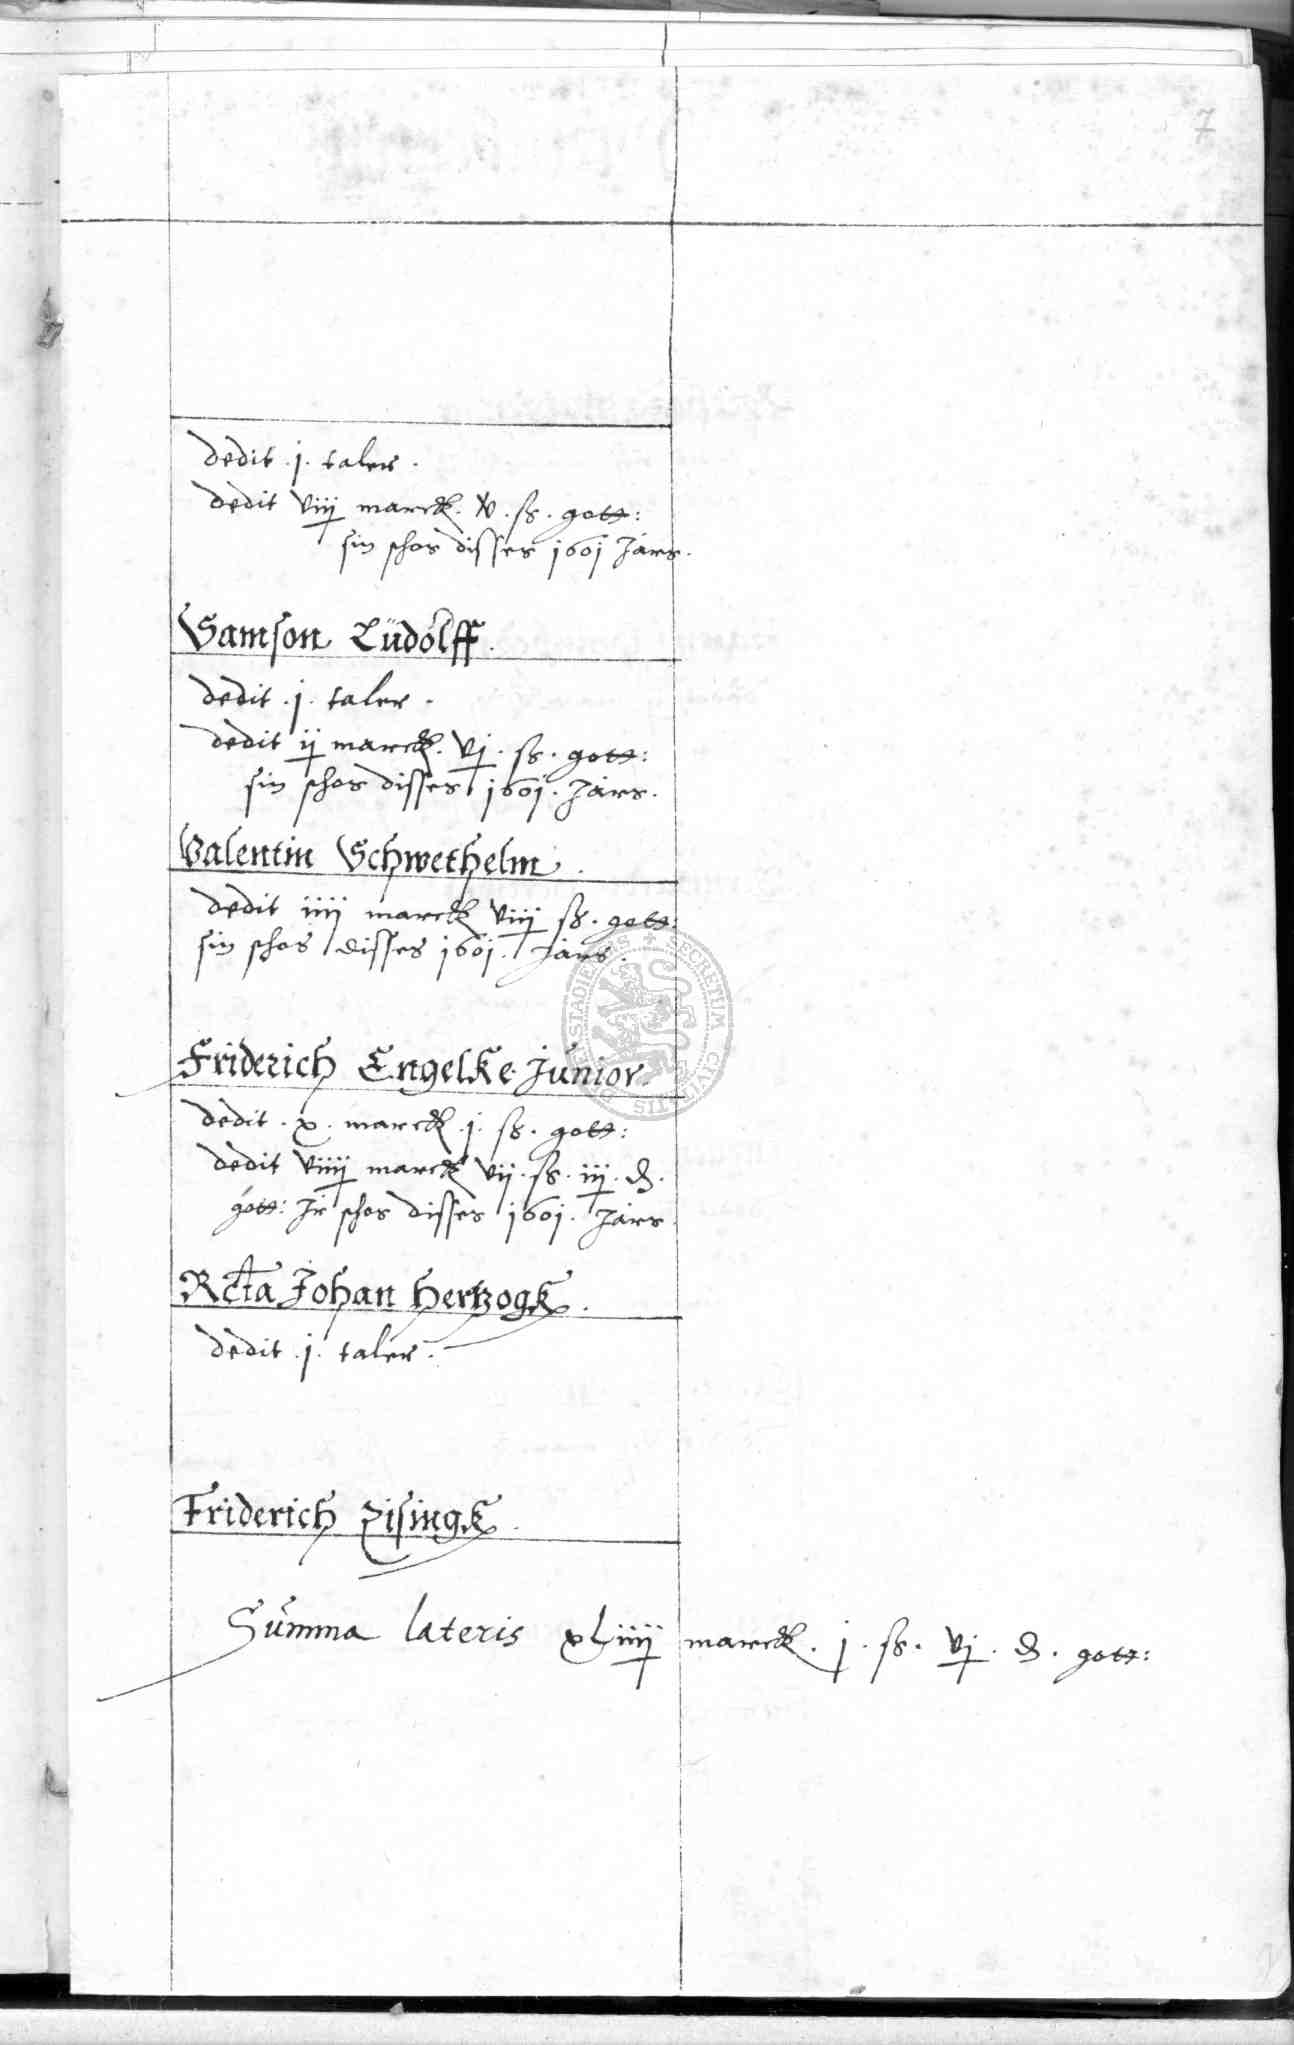 7
dedit .j. taler.
dedit viij marck. v. ss. gott:
sin schos disses 1601 Jars.
Samson Lüdolff.
dedit .j. taler.
dedit ij marck. vj. ss. gott:
sin schos disses 1601. Jars.
Valentin Schwethelm.
dedit iiij marck viij ss. gott:
sin schos disses 1601. Jars.
Friderich Engelke Junior.
dedit .x. marck .j. ss. gott:
dedit viiij marck vij. ss. iij. d.
gott: Jr schos disses 1601. Jars.
Rcta Johan Hertzogk.
dedit .j. taler.
Friderich Pisingk.
Summa lateris xliiij marck. j. ss. vj. d. gott:
SECRETUM CIVITATIS